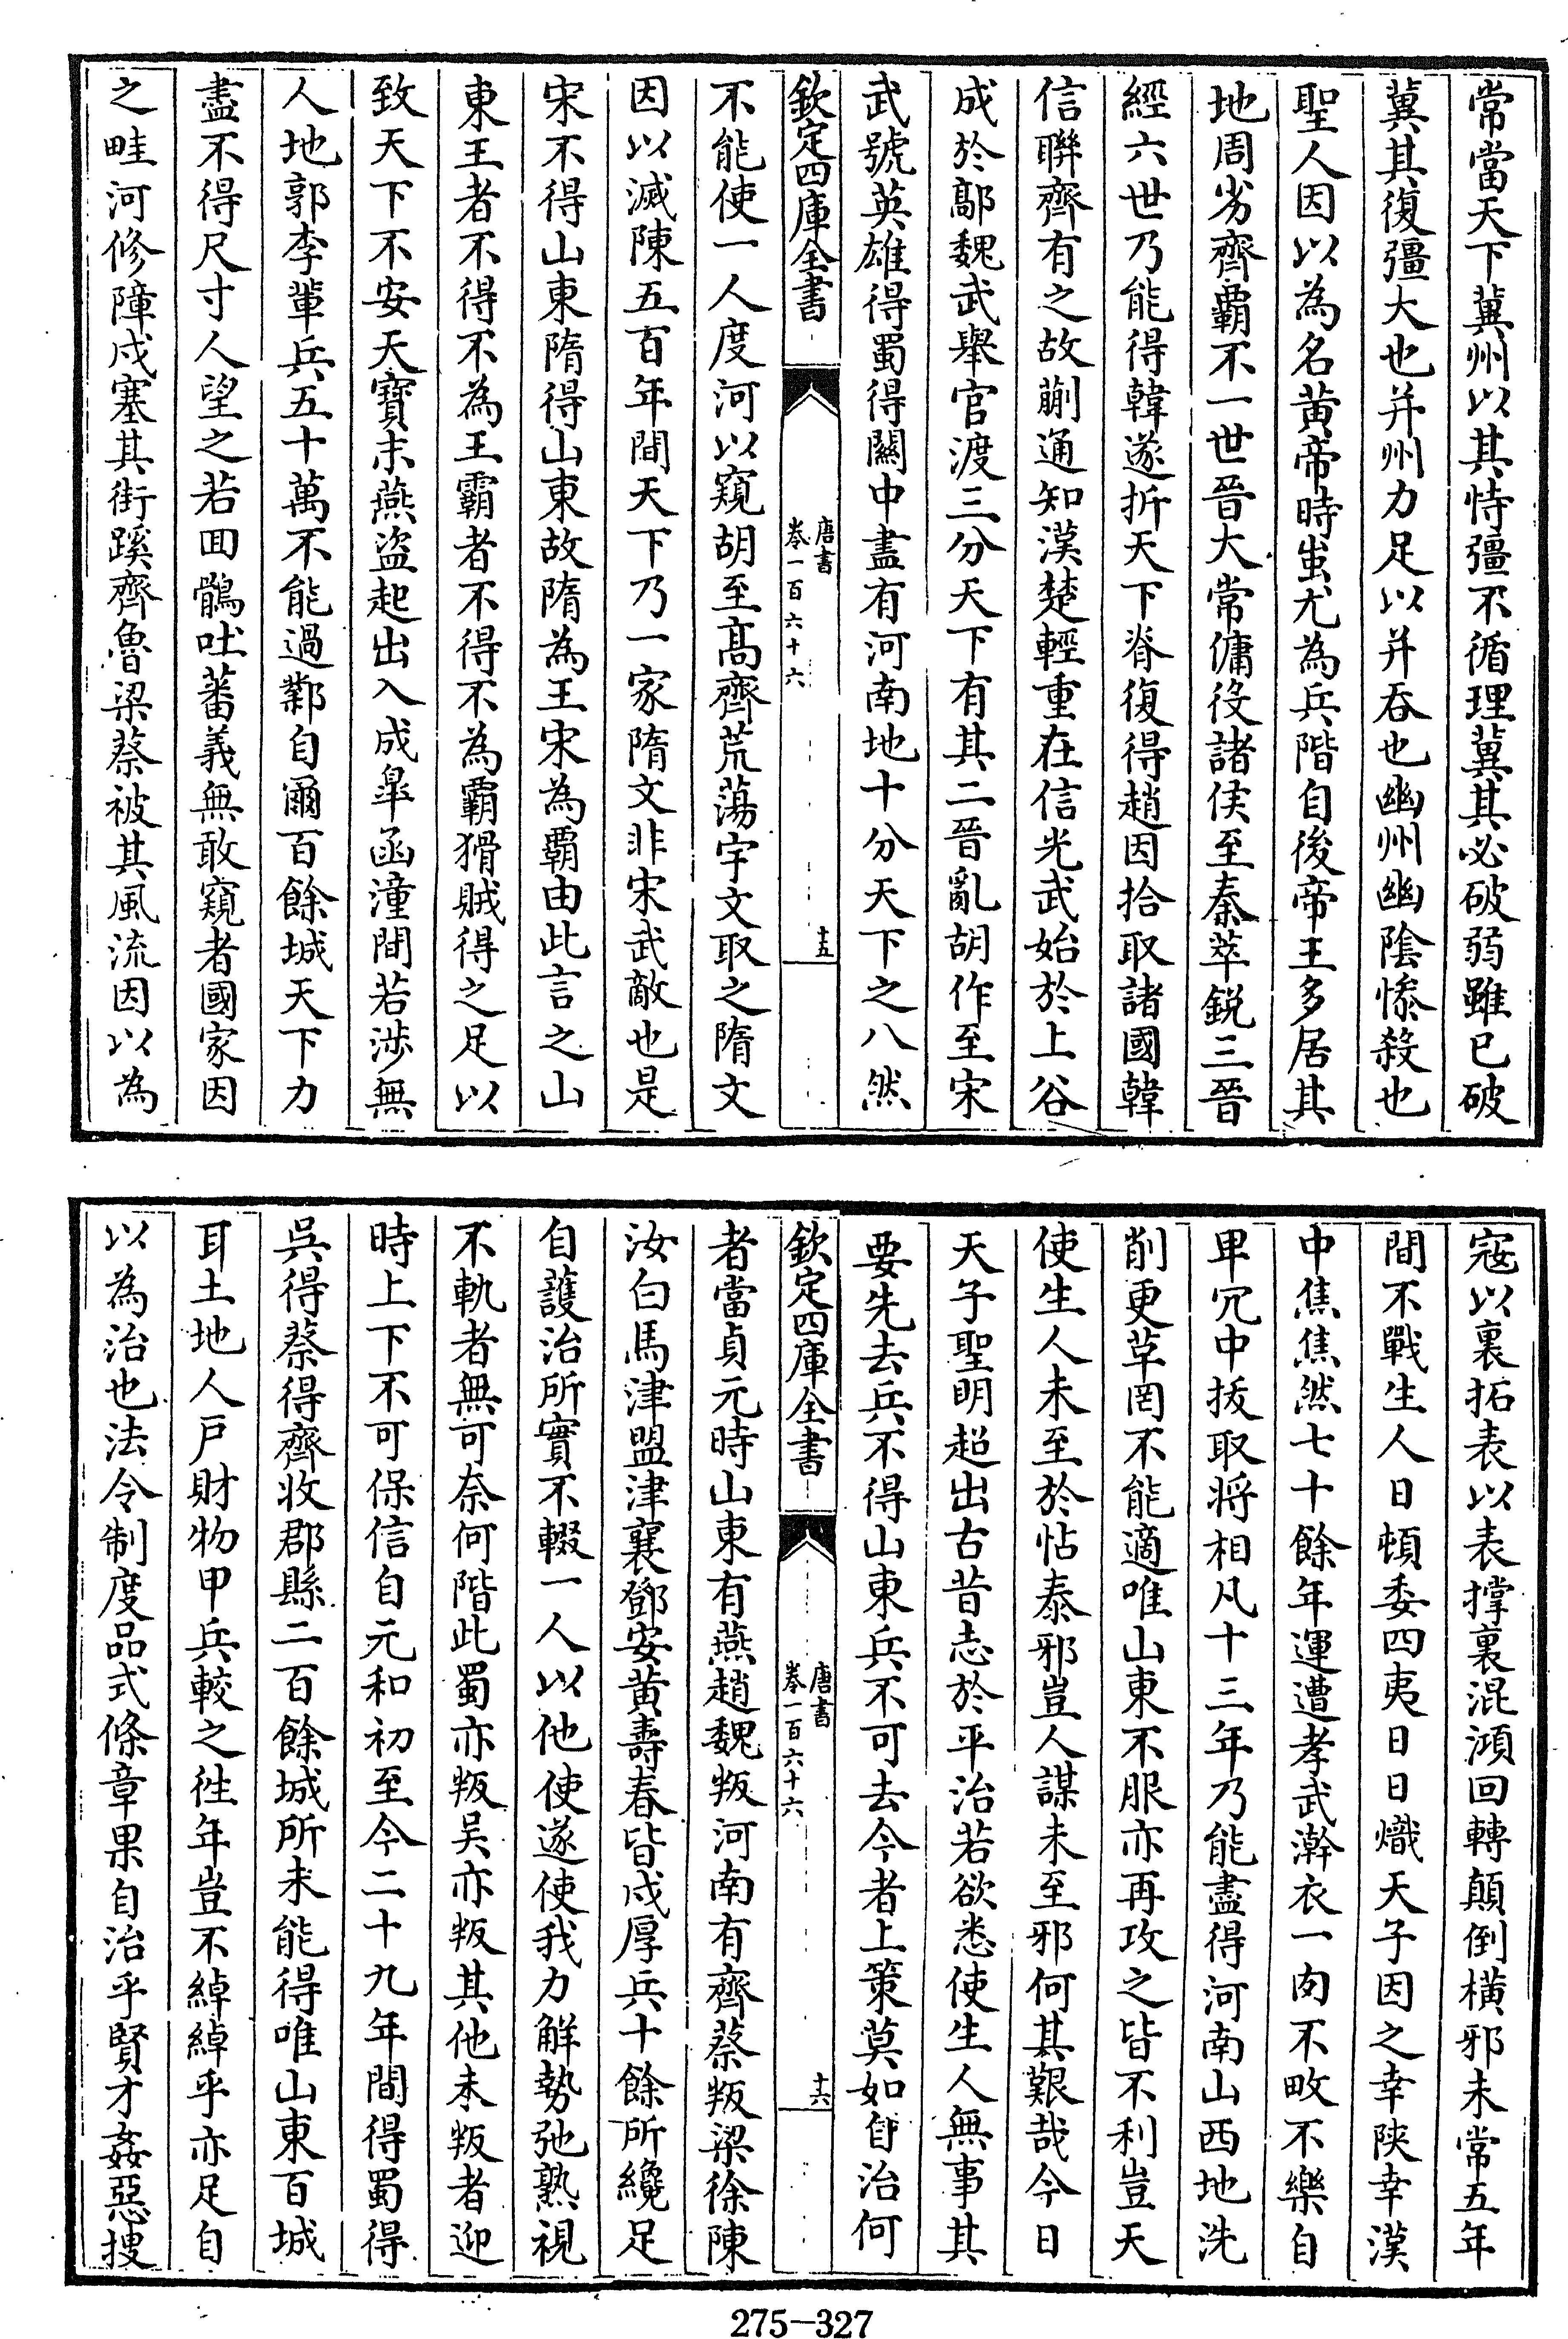 常當天下冀州以其恃彊不循理冀其必破弱雖已破
冀其復彊大也并州力足以并吞也幽州幽陰慘殺也
聖人因以為名黄帝時蚩尤為兵階自後帝王多居其
地周劣齊霸不一世晉大常傭役諸侯至秦萃銳三晉
經六世乃能得韓遂折天下脊復得趙因拾取諸國韓
信聯齊有之故蒯通知漢楚輕重在信光武始於上谷
成於鄗魏武舉官渡三分天下有其二晉亂胡作至宋
武號英雄得蜀得關中盡有河南地十分天下之八然
欽定四庫全書
唐書
卷一百六十六
十五
不能使一人度河以窺胡至髙齊荒蕩宇文取之隋文
因以滅陳五百年間天下乃一家隋文非宋武敵也是
宋不得山東隋得山東故隋為王宋為霸由此言之山
東王者不得不為王霸者不得不為霸猾賊得之足以
致天下不安天寶末燕盜起出入成臯函潼間若涉無
人地郭李輩兵五十萬不能過鄴自爾百餘城天下力
盡不得尺寸人望之若回鶻吐蕃義無敢窺者國家因
之畦河修障戍塞其街蹊齊魯梁蔡被其風流因以為
寇以裏拓表以表撑裏混澒回轉顛倒橫邪未常五年
間不戰生人日頓委四夷日日熾天子因之幸陝幸漢
中焦焦然七十餘年運遭孝武澣衣一肉不畋不樂自
卑冗中拔取将相凡十三年乃能盡得河南山西地洗
削更革罔不能適唯山東不服亦再攻之皆不利豈天
使生人未至於怗泰邪豈人謀未至邪何其艱哉今日
天子聖明超出古昔志於平治若欲悉使生人無事其
要先去兵不得山東兵不可去今者上策莫如自治何
欽定四庫全書
唐書
卷一百六十六
十六
者當貞元時山東有燕趙魏叛河南有齊蔡叛梁徐陳
汝白馬津盟津襄鄧安黄壽春皆戍厚兵十餘所纔足
自護治所實不輟一人以他使遂使我力解勢弛熟視
不軌者無可奈何階此蜀亦叛吴亦叛其他未叛者迎
時上下不可保信自元和初至今二十九年間得蜀得
吳得蔡得齊收郡縣二百餘城所未能得唯山東百城
耳土地人戶財物甲兵較之徃年豈不綽綽乎亦足自
以為治也法令制度品式條章果自治乎賢才姦惡搜
275-327